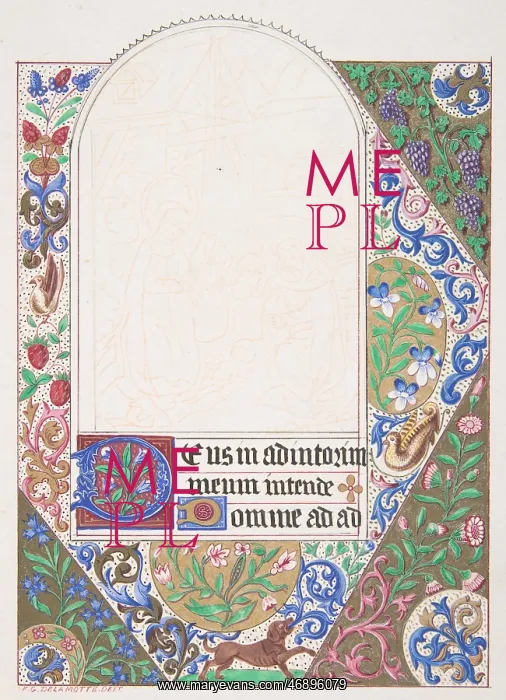 ME
PL
Deus in adiutorim
meum intende
Domine ad ad
ME
PL
P.G. DELAMOTTE. DELT.
www.maryevans.com/46896079